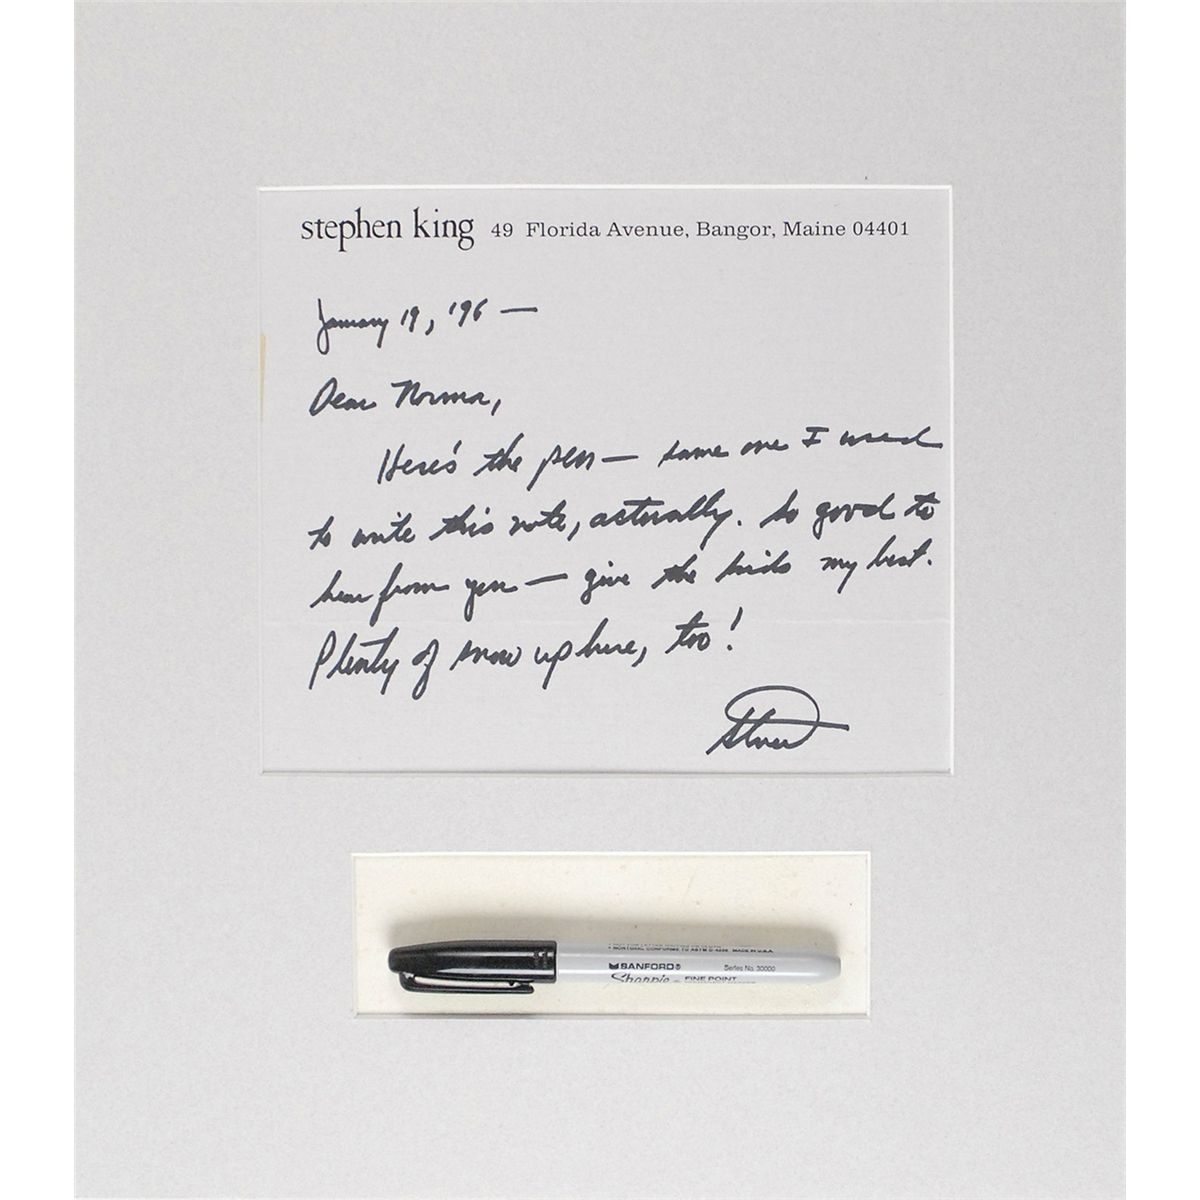 stephen king 49 Florida Avenue, Bangor, Maine 04401
January 19, '96 —
Dear Norma,
Here's the pen — same one I used
to write this note, actually. So good to
hear from you — give the kids my best.
Plenty of snow up here, too!
Steve
NONTOXIC CONFORMS TO ASTM D-4236 MADE IN U.S.A.
SANFORD® Series No. 30000
Sharpie FINE POINT